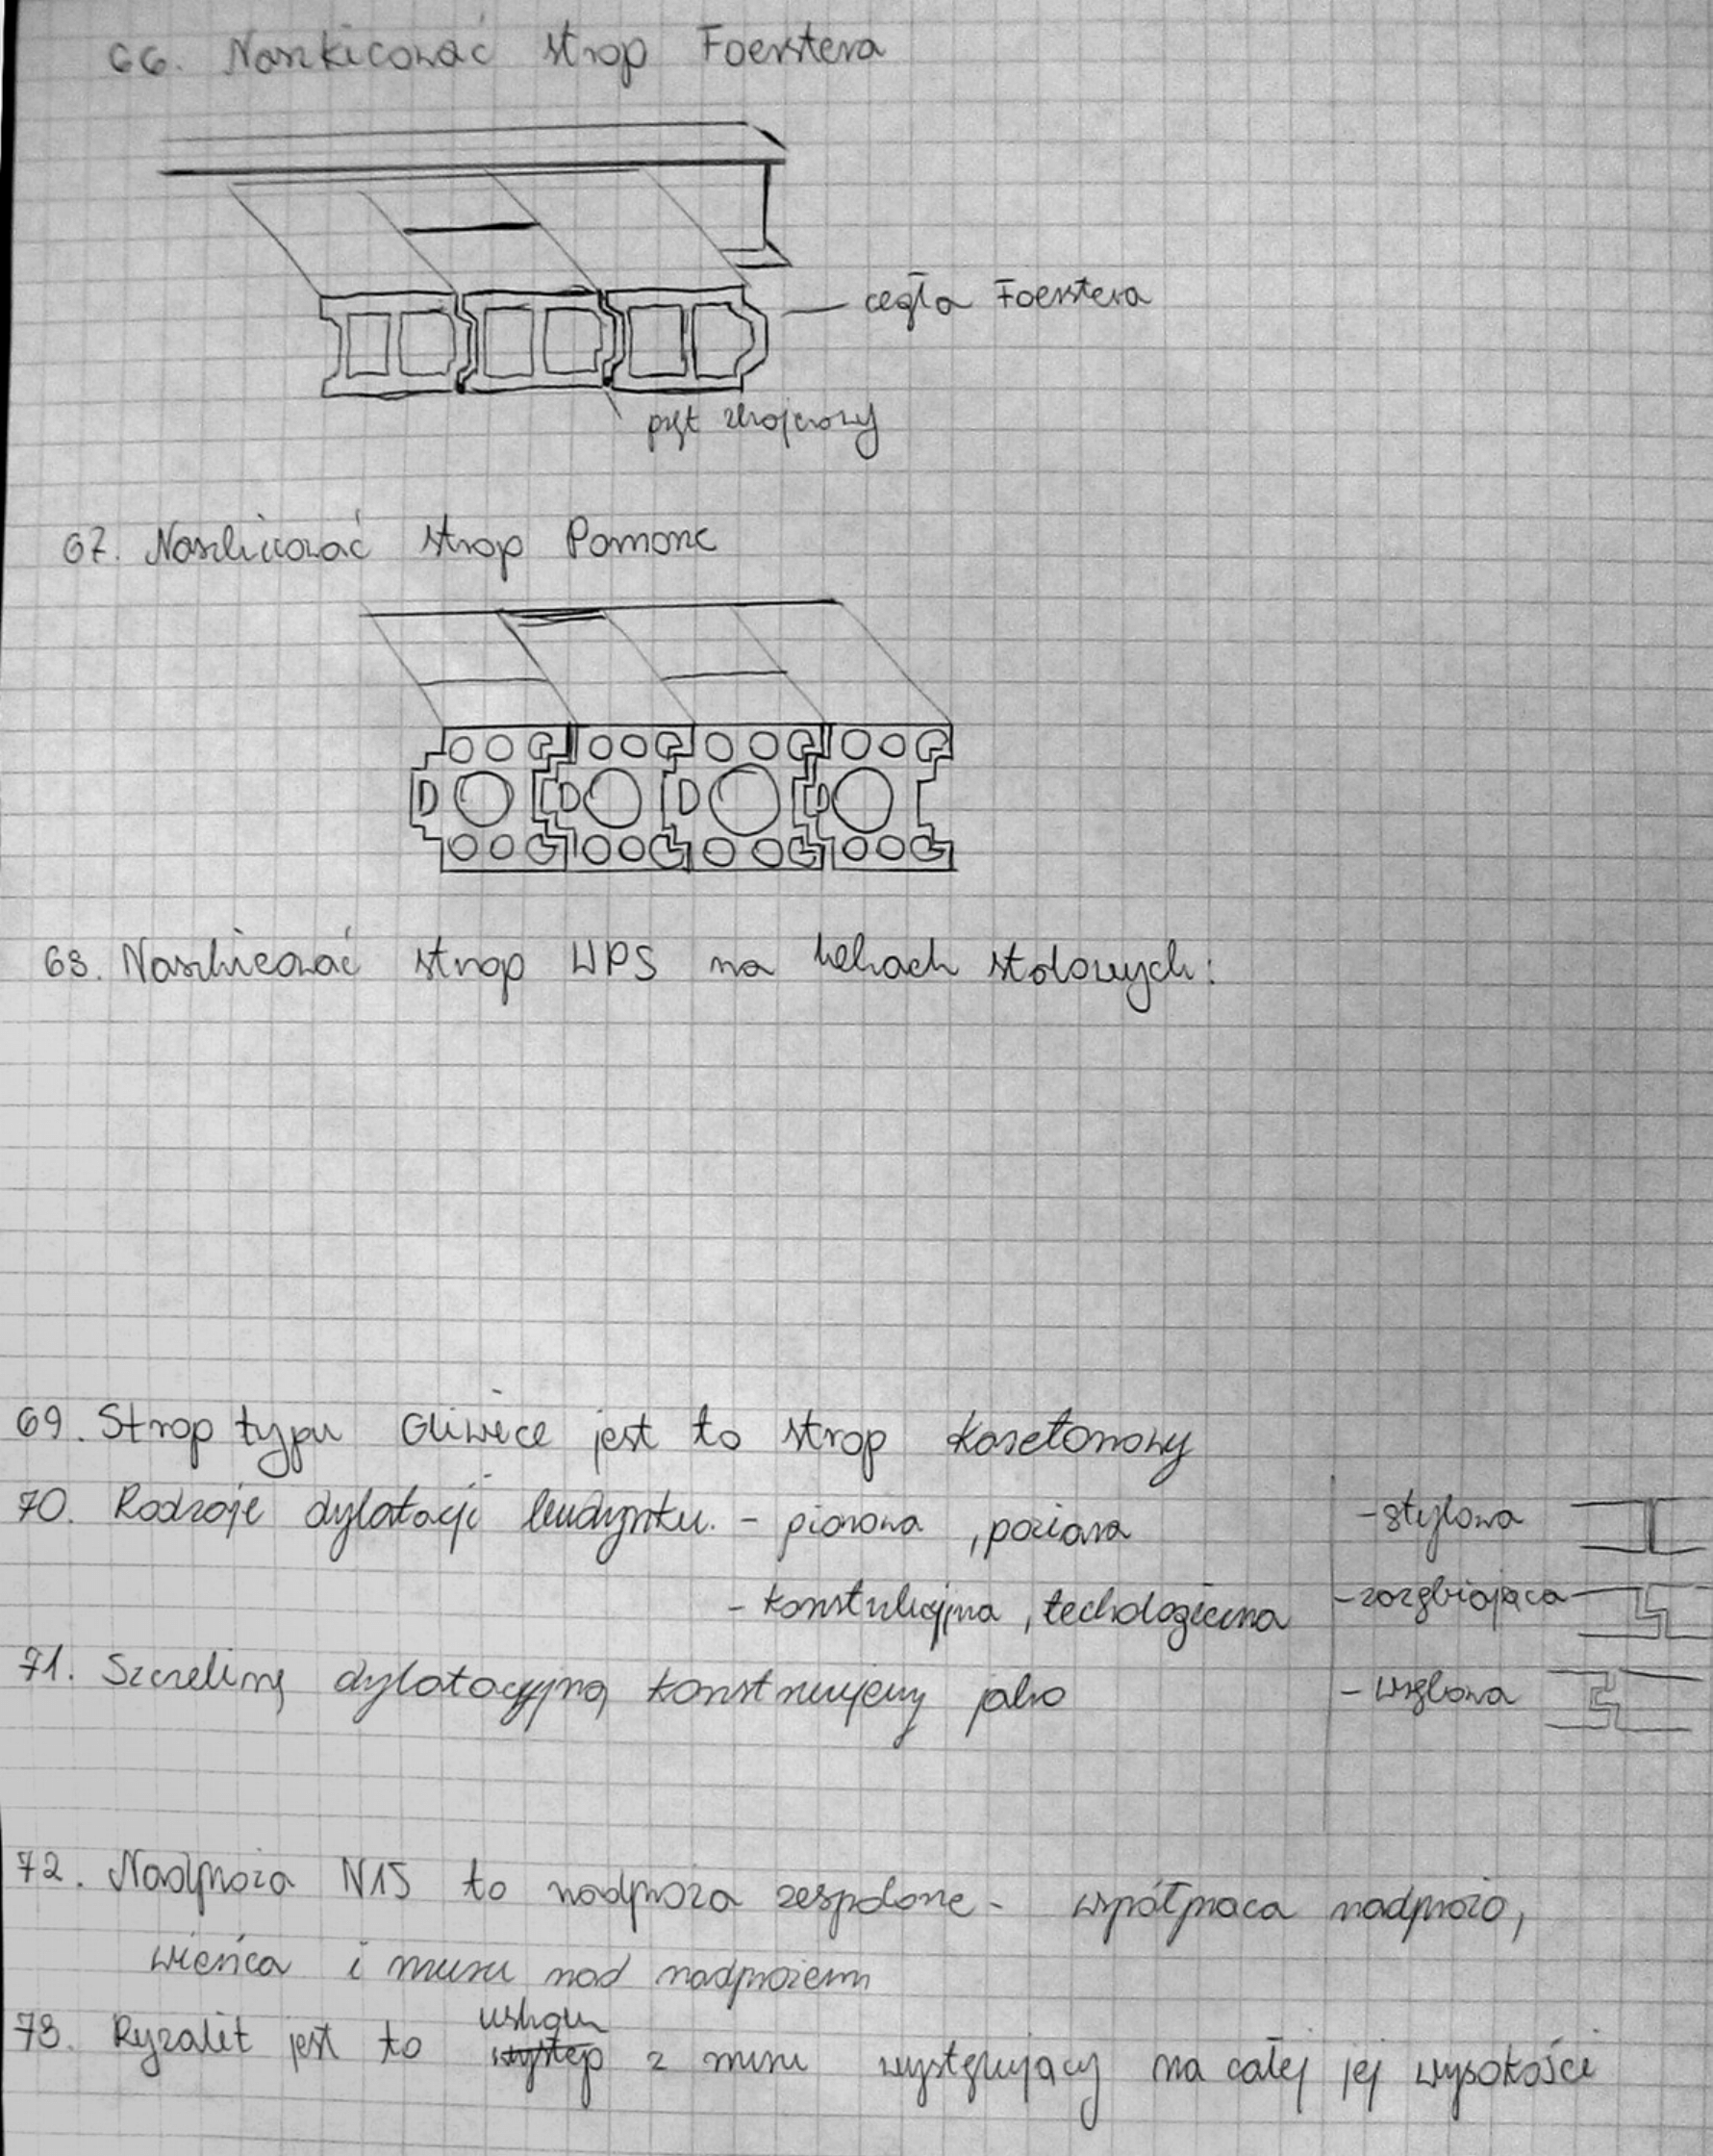 66. Naszkicować strop Foerstera
cegła Foerstera
pręt zbrojeniowy
67. Naszkicować strop Pomorze
68. Naszkicować strop WPS na belkach stalowych:
69. Strop typu Gliwice jest to strop kasetonowy
70. Rodzaje dylatacji budynku. - pionowa, pozioma
- konstrukcyjna, techologiczna
71. Szczelinę dylatacyjną konstruujemy jako
- stykowa
- zazębiająca
- wrębowa
72. Nadproża N15 to nadproża zespolone - współpraca nadproża,
wieńca i muru nad nadprożem
uskok
73. Ryzalit jest to występ z muru występujący na całej jej wysokości